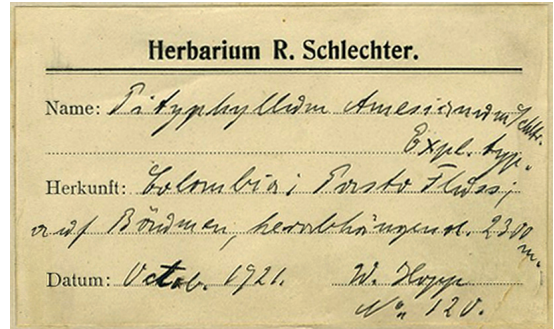 Herbarium R. Schlechter.
Name: Pityphyllum Amesianum Schltr.
Expl. typ.
Herkunft: Colombia; Pasto Fluss;
auf Bäumen, herabhängend. 2300 m.
Datum: Octob. 1921. W. Hopp
No. 120.